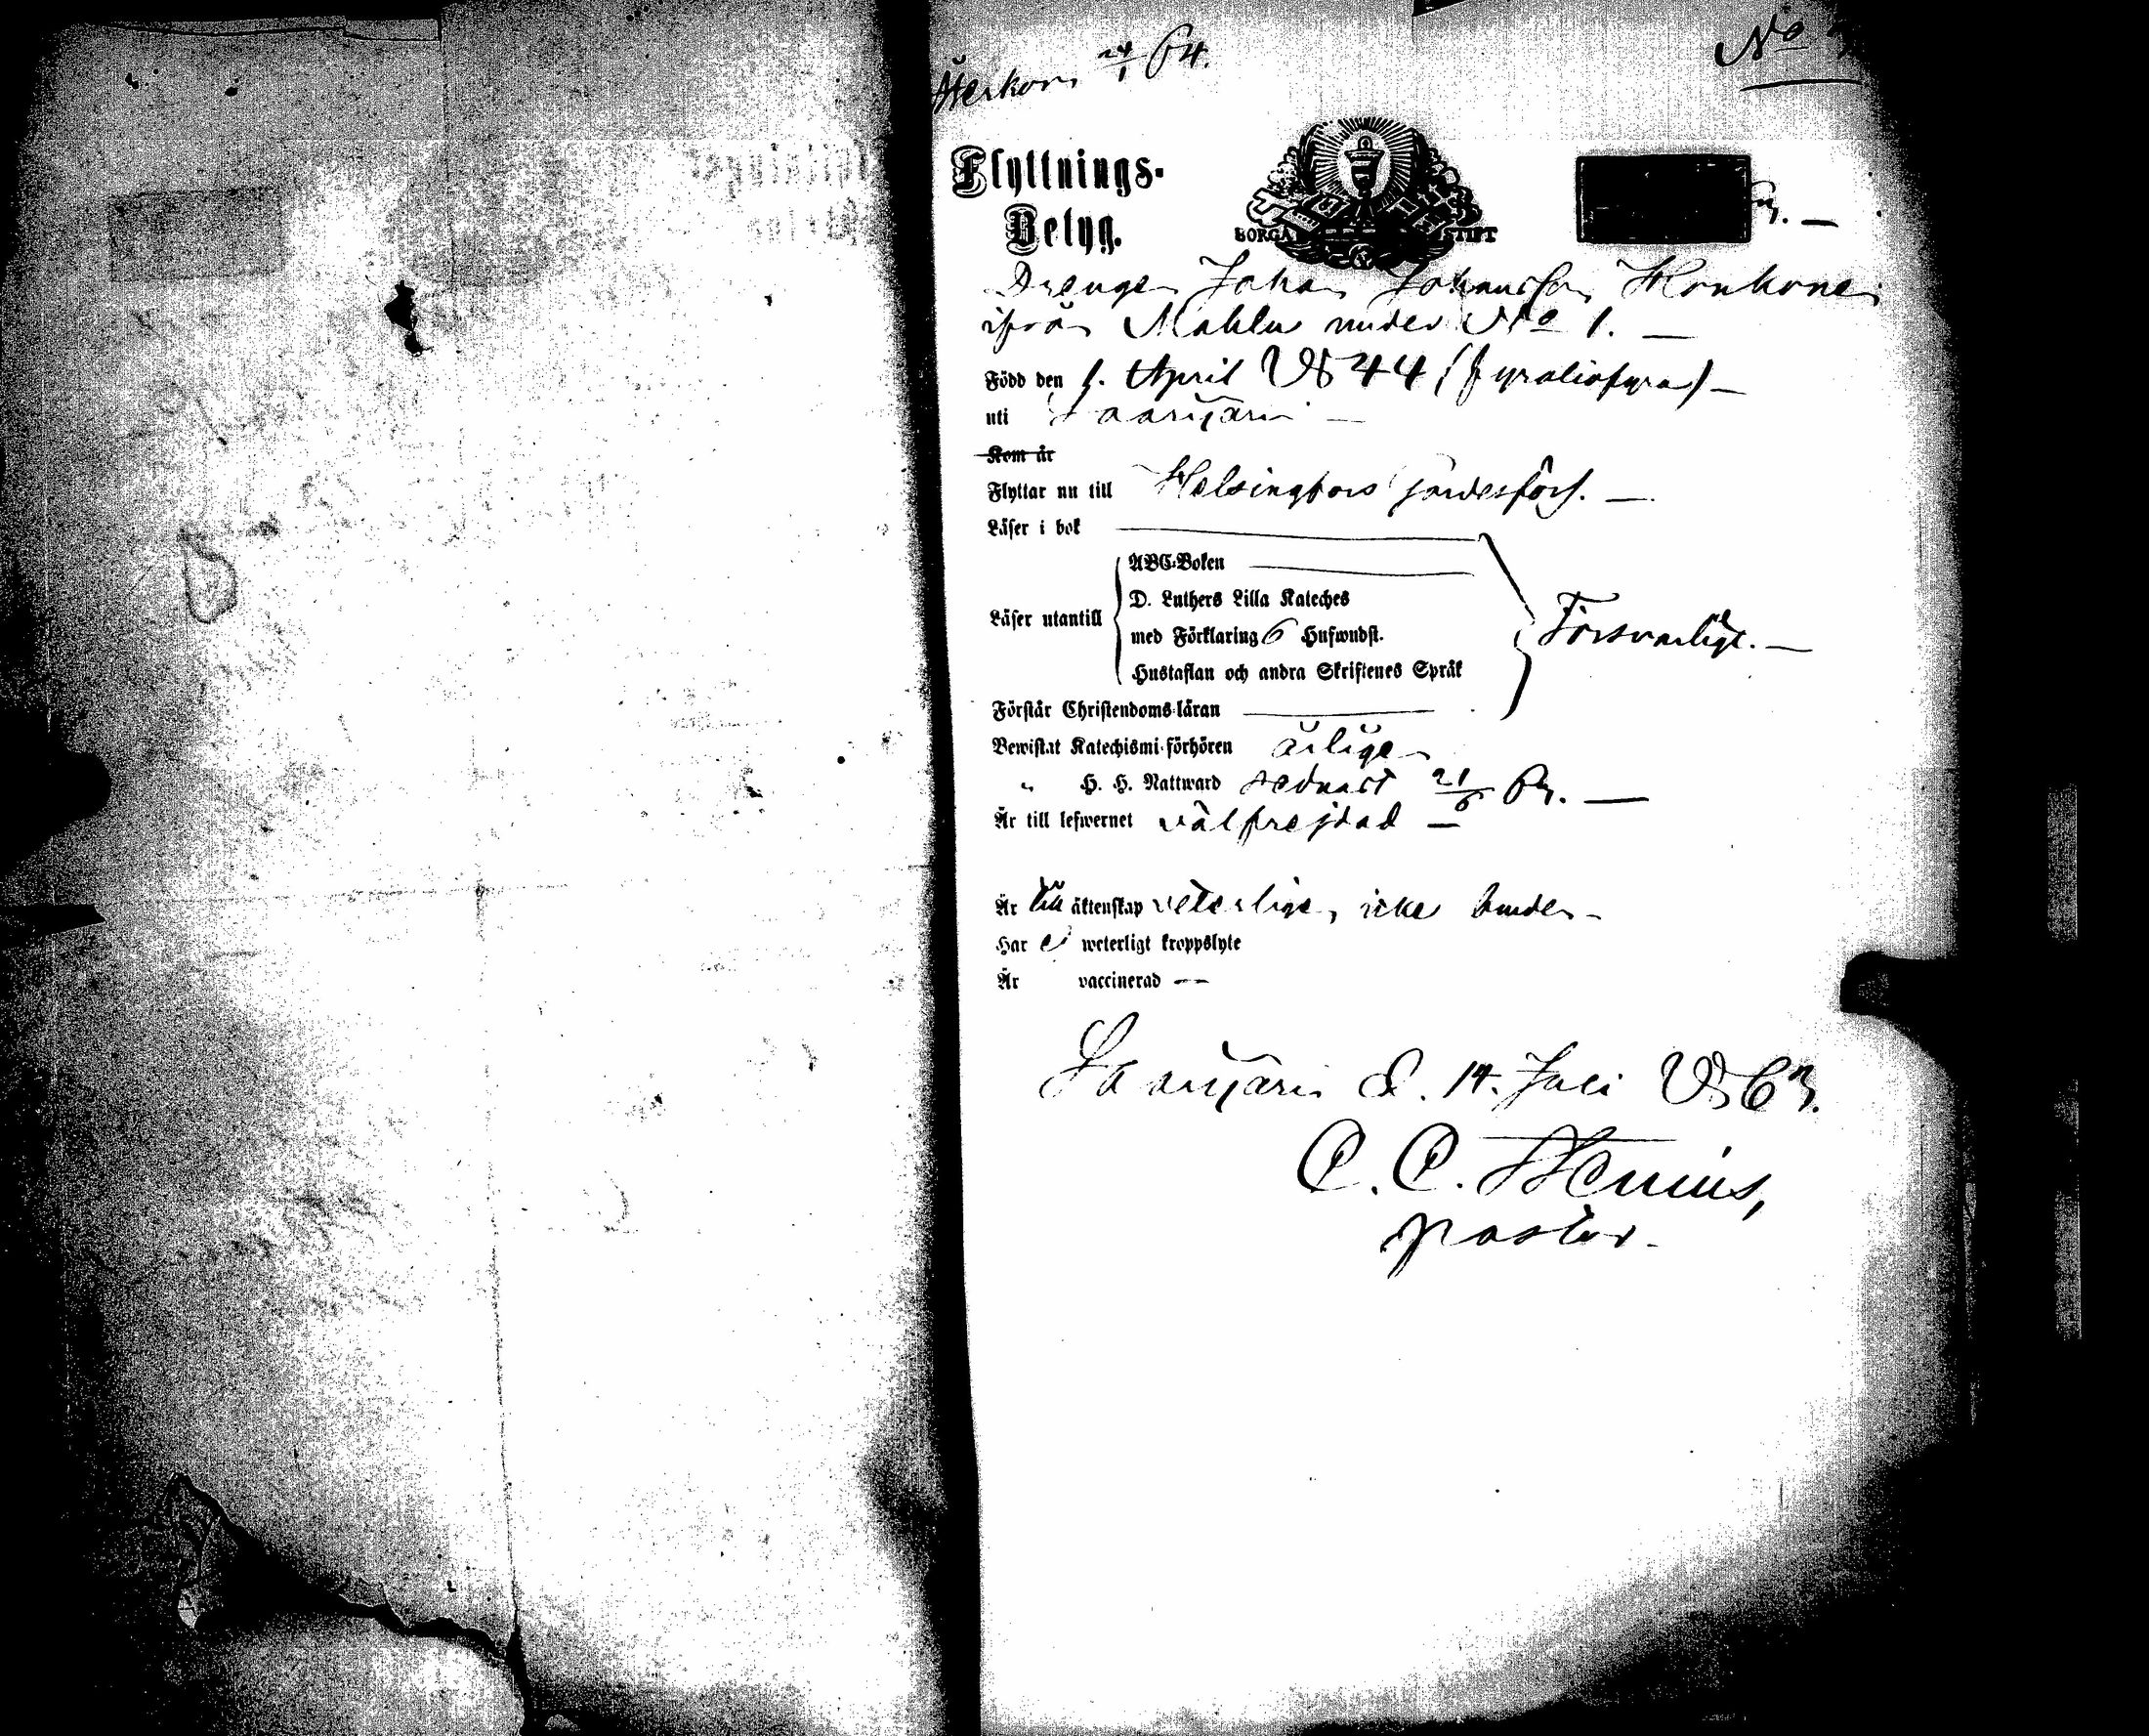 Återkom 24/1 64.
No
Flyttnings-
Betyg.
BORGÅ STIFT
Drengen Johan Johansson Honkonen
ifrån Mahlu under No 1. —
Född den 1. April 1844 (fyratiofyra) —
uti Saarijärvi —
Kom år
Flyttar nu till Helsingfors —
Läser i bok
ABC-Boken
D. Luthers Lilla Kateches
Läser utantill
med Förklaring 6 Hufwudst.
Försvarligt. —
Hustaflan och andra Skriftenes Språk
Förstår Christendoms-läran
Bewistat Katechismi-förhören årligen
" H. H. Nattward sednast 21/6 63. —
Är till lefwernet välfrejdad —
Är till äktenskap veterligen icke bunden —
Har ej weterligt kroppslyte
Är vaccinerad — —
Saarijärvi d. 14. Juli 1863.
pastor.